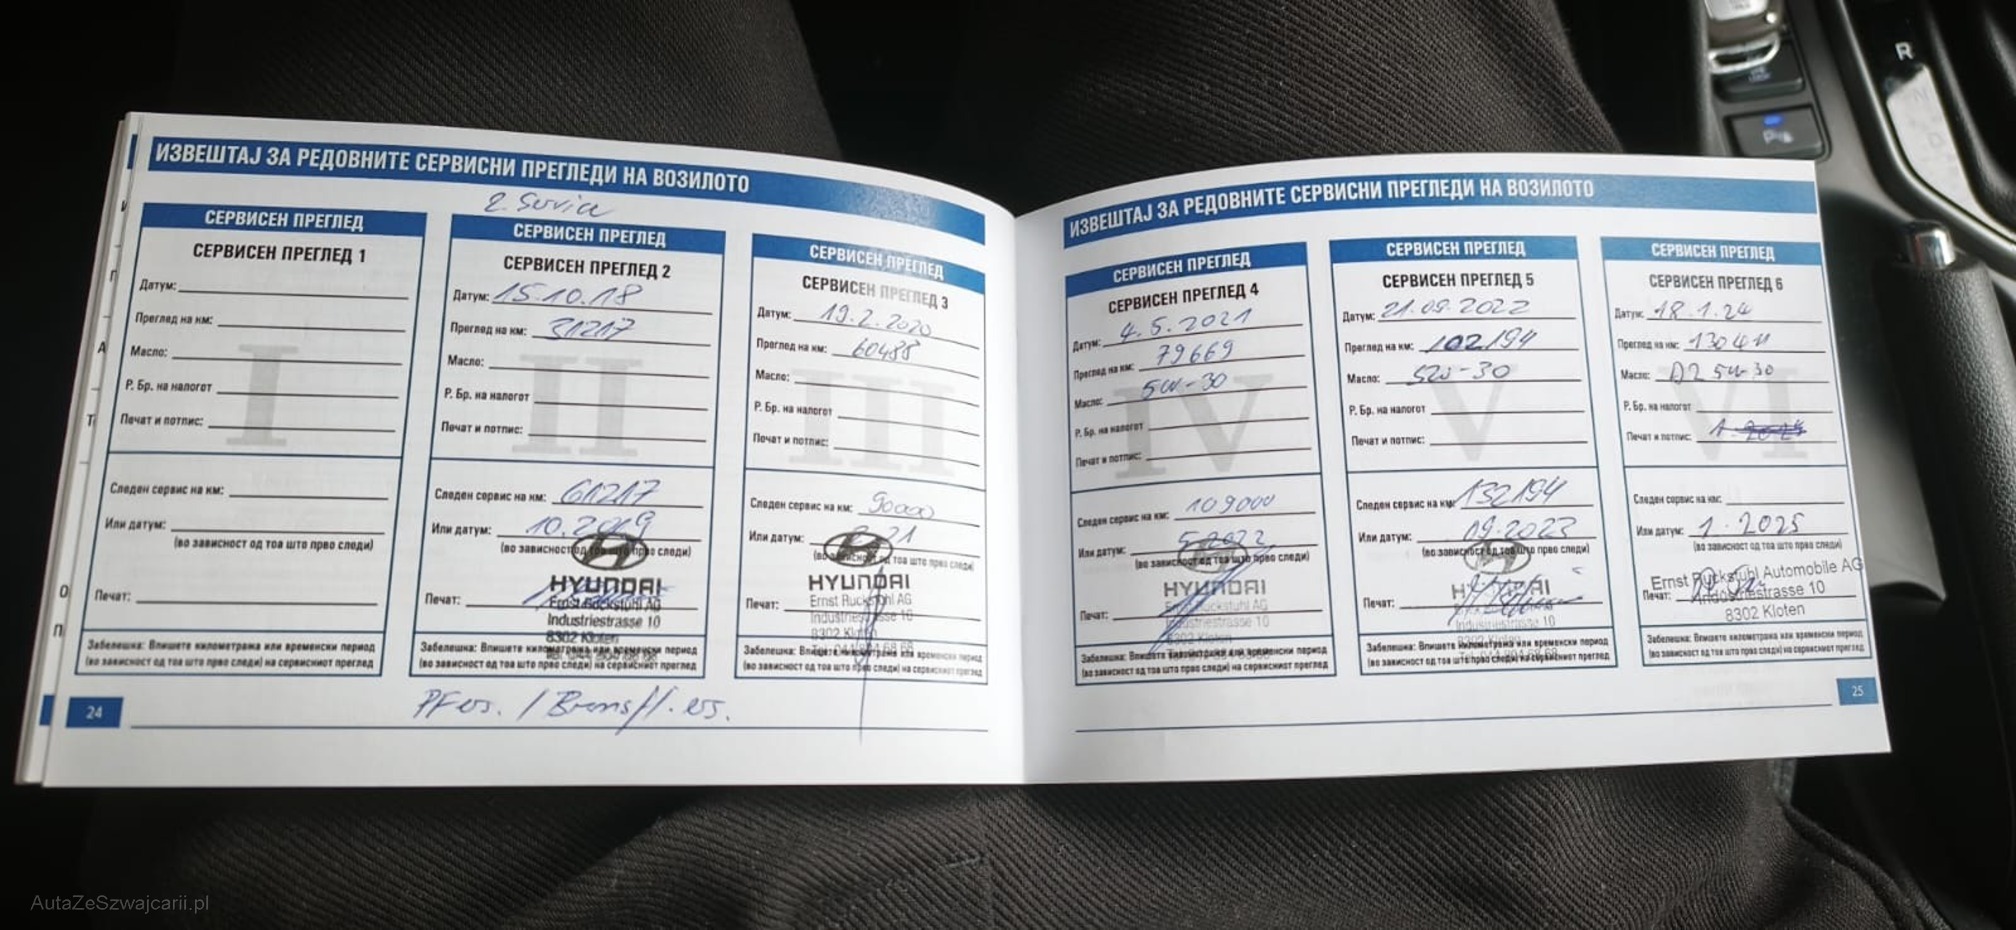 ИЗВЕШТАЈ ЗА РЕДОВНИТЕ СЕРВИСНИ ПРЕГЛЕДИ НА ВОЗИЛОТО
СЕРВИСЕН ПРЕГЛЕД
СЕРВИСЕН ПРЕГЛЕД 1
Датум:
Преглед на км:
Масло:
Р. Бр. на налогот
Печат и потпис:
I
Следен сервис на км:
Или датум:
(во зависност од тоа што прво следи)
Печат:
Забелешка: Впишете километража или временски период
(во зависност од тоа што прво следи) на сервисниот преглед
24
2. Service
СЕРВИСЕН ПРЕГЛЕД
СЕРВИСЕН ПРЕГЛЕД 2
Датум: 15.10.18
Преглед на км: 31217
Масло:
Р. Бр. на налогот
Печат и потпис:
II
Следен сервис на км: 61217
Или датум: 10.2019
(во зависност од тоа што прво следи)
HYUNDAI
Печат:
Ernst Ruckstuhl AG
Industriestrasse 10
8302 Kloten
Забелешка: Впишете километража или временски период
(во зависност од тоа што прво следи) на сервисниот преглед
СЕРВИСЕН ПРЕГЛЕД
СЕРВИСЕН ПРЕГЛЕД 3
Датум: 19.2.2020
Преглед на км: 60488
Масло:
Р. Бр. на налогот
Печат и потпис:
III
Следен сервис на км: 90000
Или датум:
(во зависност од тоа што прво следи)
HYUNDAI
Печат:
Ernst Ruckstuhl AG
Industriestrasse 10
8302 Kloten
Забелешка: Впишете километража или временски период
(во зависност од тоа што прво следи) на сервисниот преглед
ИЗВЕШТАЈ ЗА РЕДОВНИТЕ СЕРВИСНИ ПРЕГЛЕДИ НА ВОЗИЛОТО
СЕРВИСЕН ПРЕГЛЕД
СЕРВИСЕН ПРЕГЛЕД 4
Датум: 4.5.2021
Преглед на км: 79669
Масло: 5W-30
Р. Бр. на налогот
Печат и потпис:
IV
Следен сервис на км: 109000
Или датум: 5.2022
(во зависност од тоа што прво следи)
HYUNDAI
Печат:
Ernst Ruckstuhl AG
Industriestrasse 10
8302 Kloten
Забелешка: Впишете километража или временски период
(во зависност од тоа што прво следи) на сервисниот преглед
СЕРВИСЕН ПРЕГЛЕД
СЕРВИСЕН ПРЕГЛЕД 5
Датум: 21.09.2022
Преглед на км: 102194
Масло:
Р. Бр. на налогот
Печат и потпис:
V
Следен сервис на км: 132194
Или датум: 09.2023
(во зависност од тоа што прво следи)
HYUNDAI
Печат:
Industriestrasse 10
8302 Kloten
Забелешка: Впишете километража или временски период
(во зависност од тоа што прво следи) на сервисниот преглед
СЕРВИСЕН ПРЕГЛЕД
СЕРВИСЕН ПРЕГЛЕД 6
Датум: 18.1.24
Преглед на км: 130411
Масло: 5W-30
Р. Бр. на налогот
Печат и потпис:
VI
Следен сервис на км:
Или датум: 1.2025
(во зависност од тоа што прво следи)
Ernst Ruckstuhl Automobile AG
Печат:
Industriestrasse 10
8302 Kloten
Забелешка: Впишете километража или временски период
(во зависност од тоа што прво следи) на сервисниот преглед
25
R
AutaZeSzwajcarii.pl